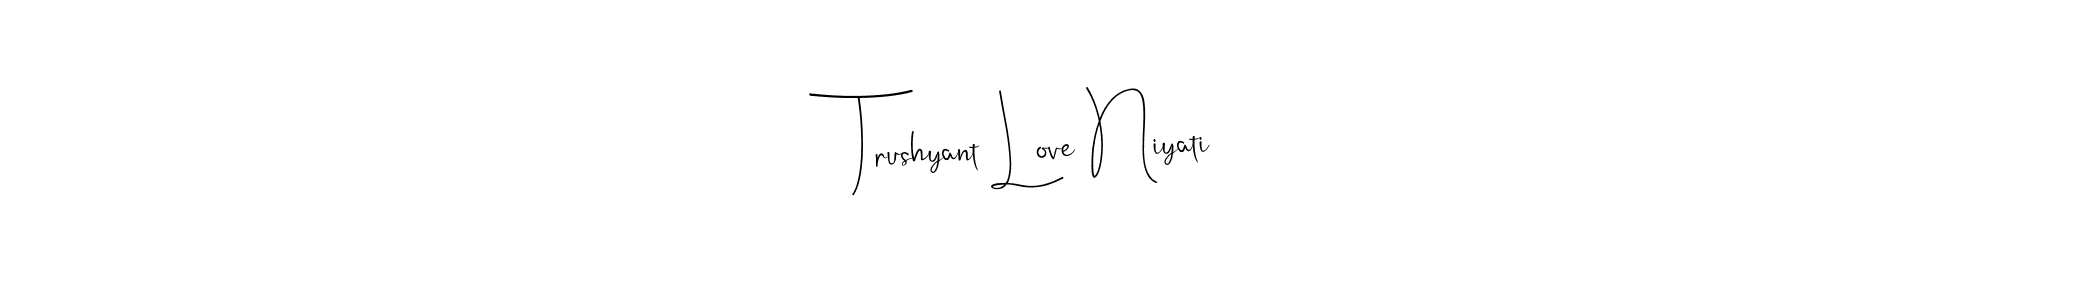 Trushyant Love Niyati